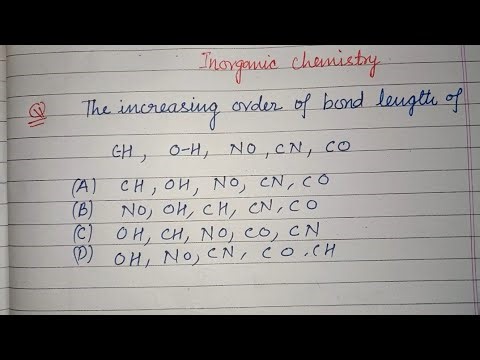 Inorganic chemistry
Q) The increasing order of bond length of
CH, O-H, NO, CN, CO
(A) CH, OH, NO, CN, CO
(B) NO, OH, CH, CN, CO
(C) OH, CH, NO, CO, CN
(D) OH, NO, CN, CO, CH